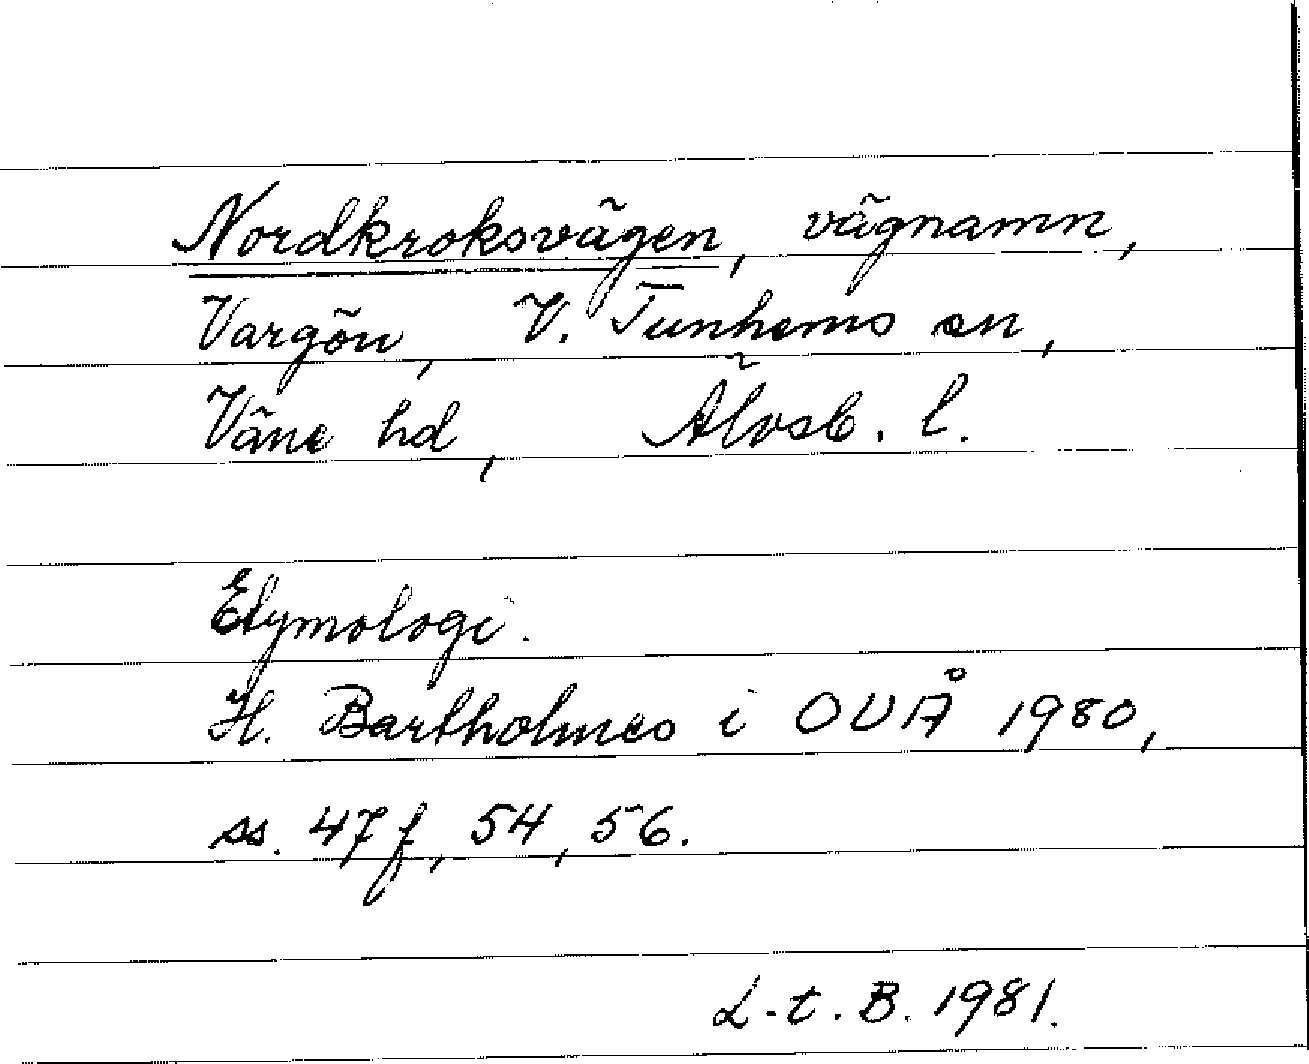 Nordkroksvägen, vägnamn,
Vargön, V. Tunhems sn,
Väne hd, Älvsb. l.
Etymologi.
H. Bartholmes i OUÅ 1980,
ss. 47f, 54, 56.
L-t. B. 1981.